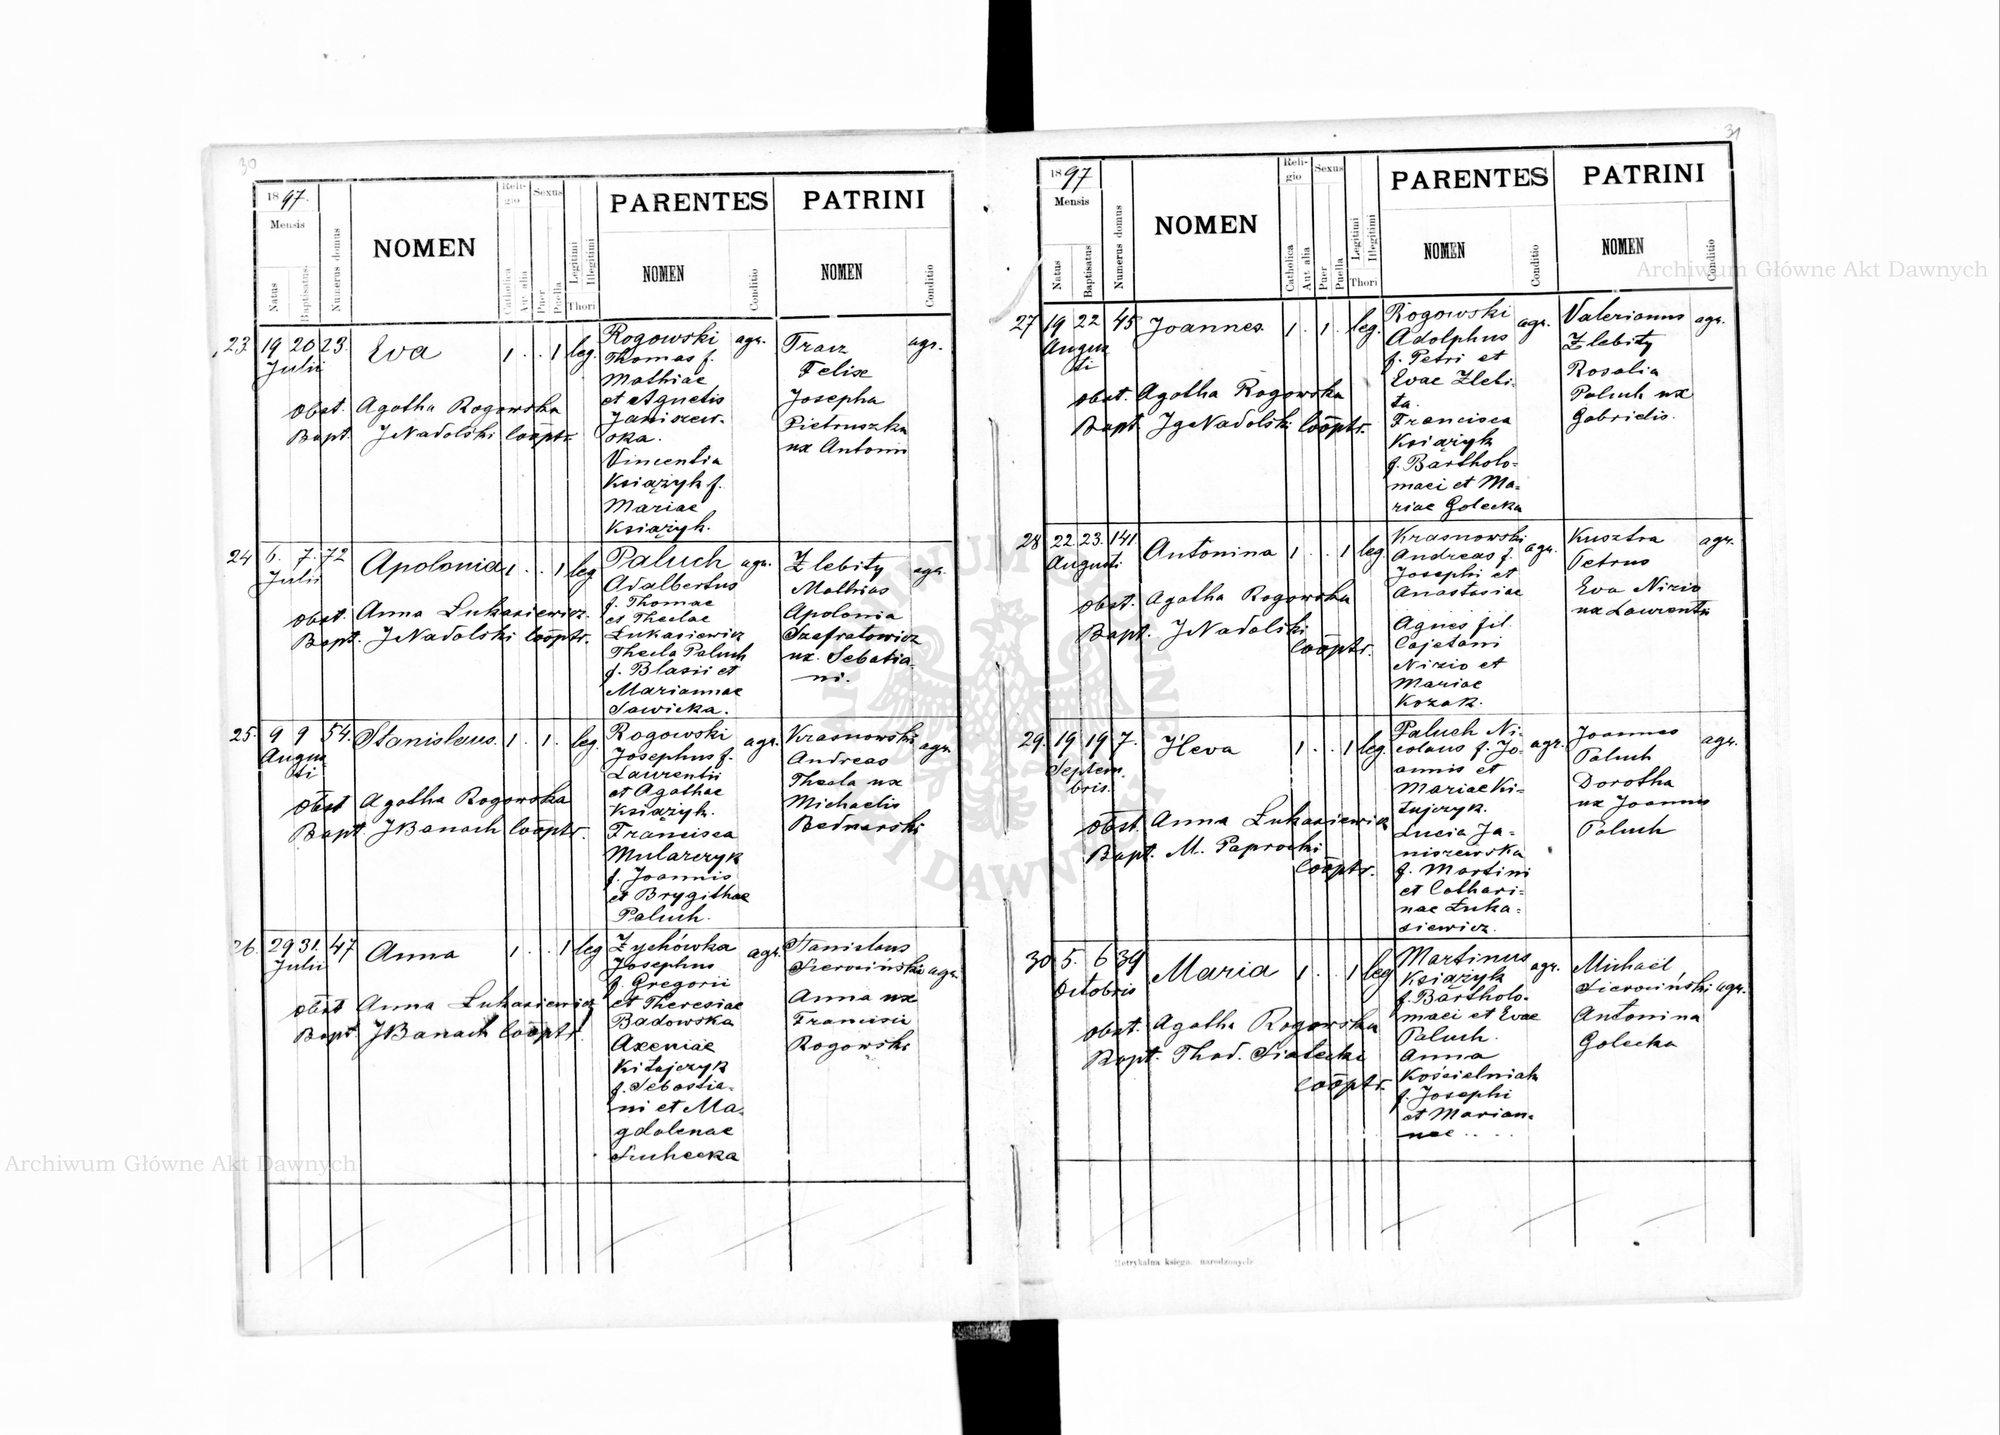 30
1897.
Mensis
Natus
Baptisatus
Numerus domus
NOMEN
Religio
Catholica
Aut alia
Sexus
Puer
Puella
Legitimi
Illegitimi
Thori
PARENTES
NOMEN
Conditio
PATRINI
NOMEN
Conditio
23 19 20 23. Eva 1 . . 1 leg.
Julii
obst. Agatha Rogowska
Bapt. JNadolski Cooptr.
Rogowski agr.
Thomas f.
Mathiae
et Agnetis
Janiszew-
ska.
Vincentia
Książyk f.
Mariae
Książyk.
Tracz agr.
Felix
Josepha
Pietruszka
ux Antonii
24 6. 7. 72 Apolonia 1 . . 1 leg
Julii
obst. Anna Łukasiewicz
Bapt. JNadolski Cooptr.
Paluch agr.
Adalbertus
f. Thomae
et Theclae
Łukasiewicz
Thecla Paluch
f. Blasii et
Mariannae
Sawicka.
Zlebity agr.
Mathias
Apolonia
Szafratowicz
ux. Sebatia-
ni.
25. 9 9 54. Stanislaus. 1 . 1 . leg.
Augus
ti
obst Agatha Rogowska
Bapt. JBanach Cooptr.
Rogowski agr.
Josephus f.
Laurentii
et Agathae
Książyk.
Francisca
Mularczyk
f. Joannis
et Brygithae
Paluch.
Krasnowski agr.
Andreas
Thecla ux
Michaelis
Bednarski
26. 29 31. 47 Anna 1 . . 1 leg
Julii
obst Anna Łukasiewicz
Bapt. JBanach Cooptr.
Zychówka agr.
Josephus
f. Gregorii
et Theresiae
Badowska
Axeniae
Kitajczyk
f. Sebastia-
ni et Ma-
gdalenae
Suhecka
Stanislaus
Sierociński agr.
Anna ux
Francisci
Rogowski
31
1897
Mensis
Natus
Baptisatus
Numerus domus
NOMEN
Religio
Catholica
Aut alia
Sexus
Puer
Puella
Legitimi
Illegitimi
Thori
PARENTES
NOMEN
Conditio
PATRINI
NOMEN
Conditio
27 19 22 45 Joannes. 1 . 1 . leg.
Augus
ti
obst. Agatha Rogowska
Bapt. JgNadolski Cooptr.
Rogowski agr.
Adolphus
f. Petri et
Evae Zlebi-
ta.
Francisca
Książyk
f. Bartholo-
maei et Ma-
riae Golecka
Valerianus agr.
Zlebity
Rosalia
Paluch ux
Gabrielis.
28 22. 23. 141. Antonina 1 . . 1 leg
Augusti
obst. Agatha Rogowska
Bapt. JNadolski
Cooptr.
Krasnowski agr.
Andreas f.
Josephi et
Anastasiae
Agnes fil.
Cajetani
Nizio et
Mariae
Kozak.
Kusztra agr.
Petrus
Eva Nizio
ux Laurentii
29. 19 19 7. Heva 1 . . 1 leg.
Septem.
bris.
obst. Anna Łukasiewicz
Bapt. M. Paprocki
Cooptr.
Paluch Ni- agr.
colaus f. Jo-
annis et
Mariae Ki-
tajczyk.
Lucia Ja-
niszewska
f. Martini
et Cathari-
nae Łuka-
siewicz.
Joannes agr.
Paluch
Dorotha
ux Joannis
Paluch
30 5. 6 39 Maria 1 . . 1 leg
Octobris
obst. Agatha Rogowska
Bapt. Thad. Siatecki
Cooptr.
Martinus agr.
Książyk
f. Bartholo-
maei et Evae
Paluch.
Anna
Kościelniak
f. Josephi
et Marian-
nae ....
Michaël
Sierociński agr.
Antonina
Golecka
Metrykalna księga narodzonych
Archiwum Główne Akt Dawnych
Archiwum Główne Akt Dawnych